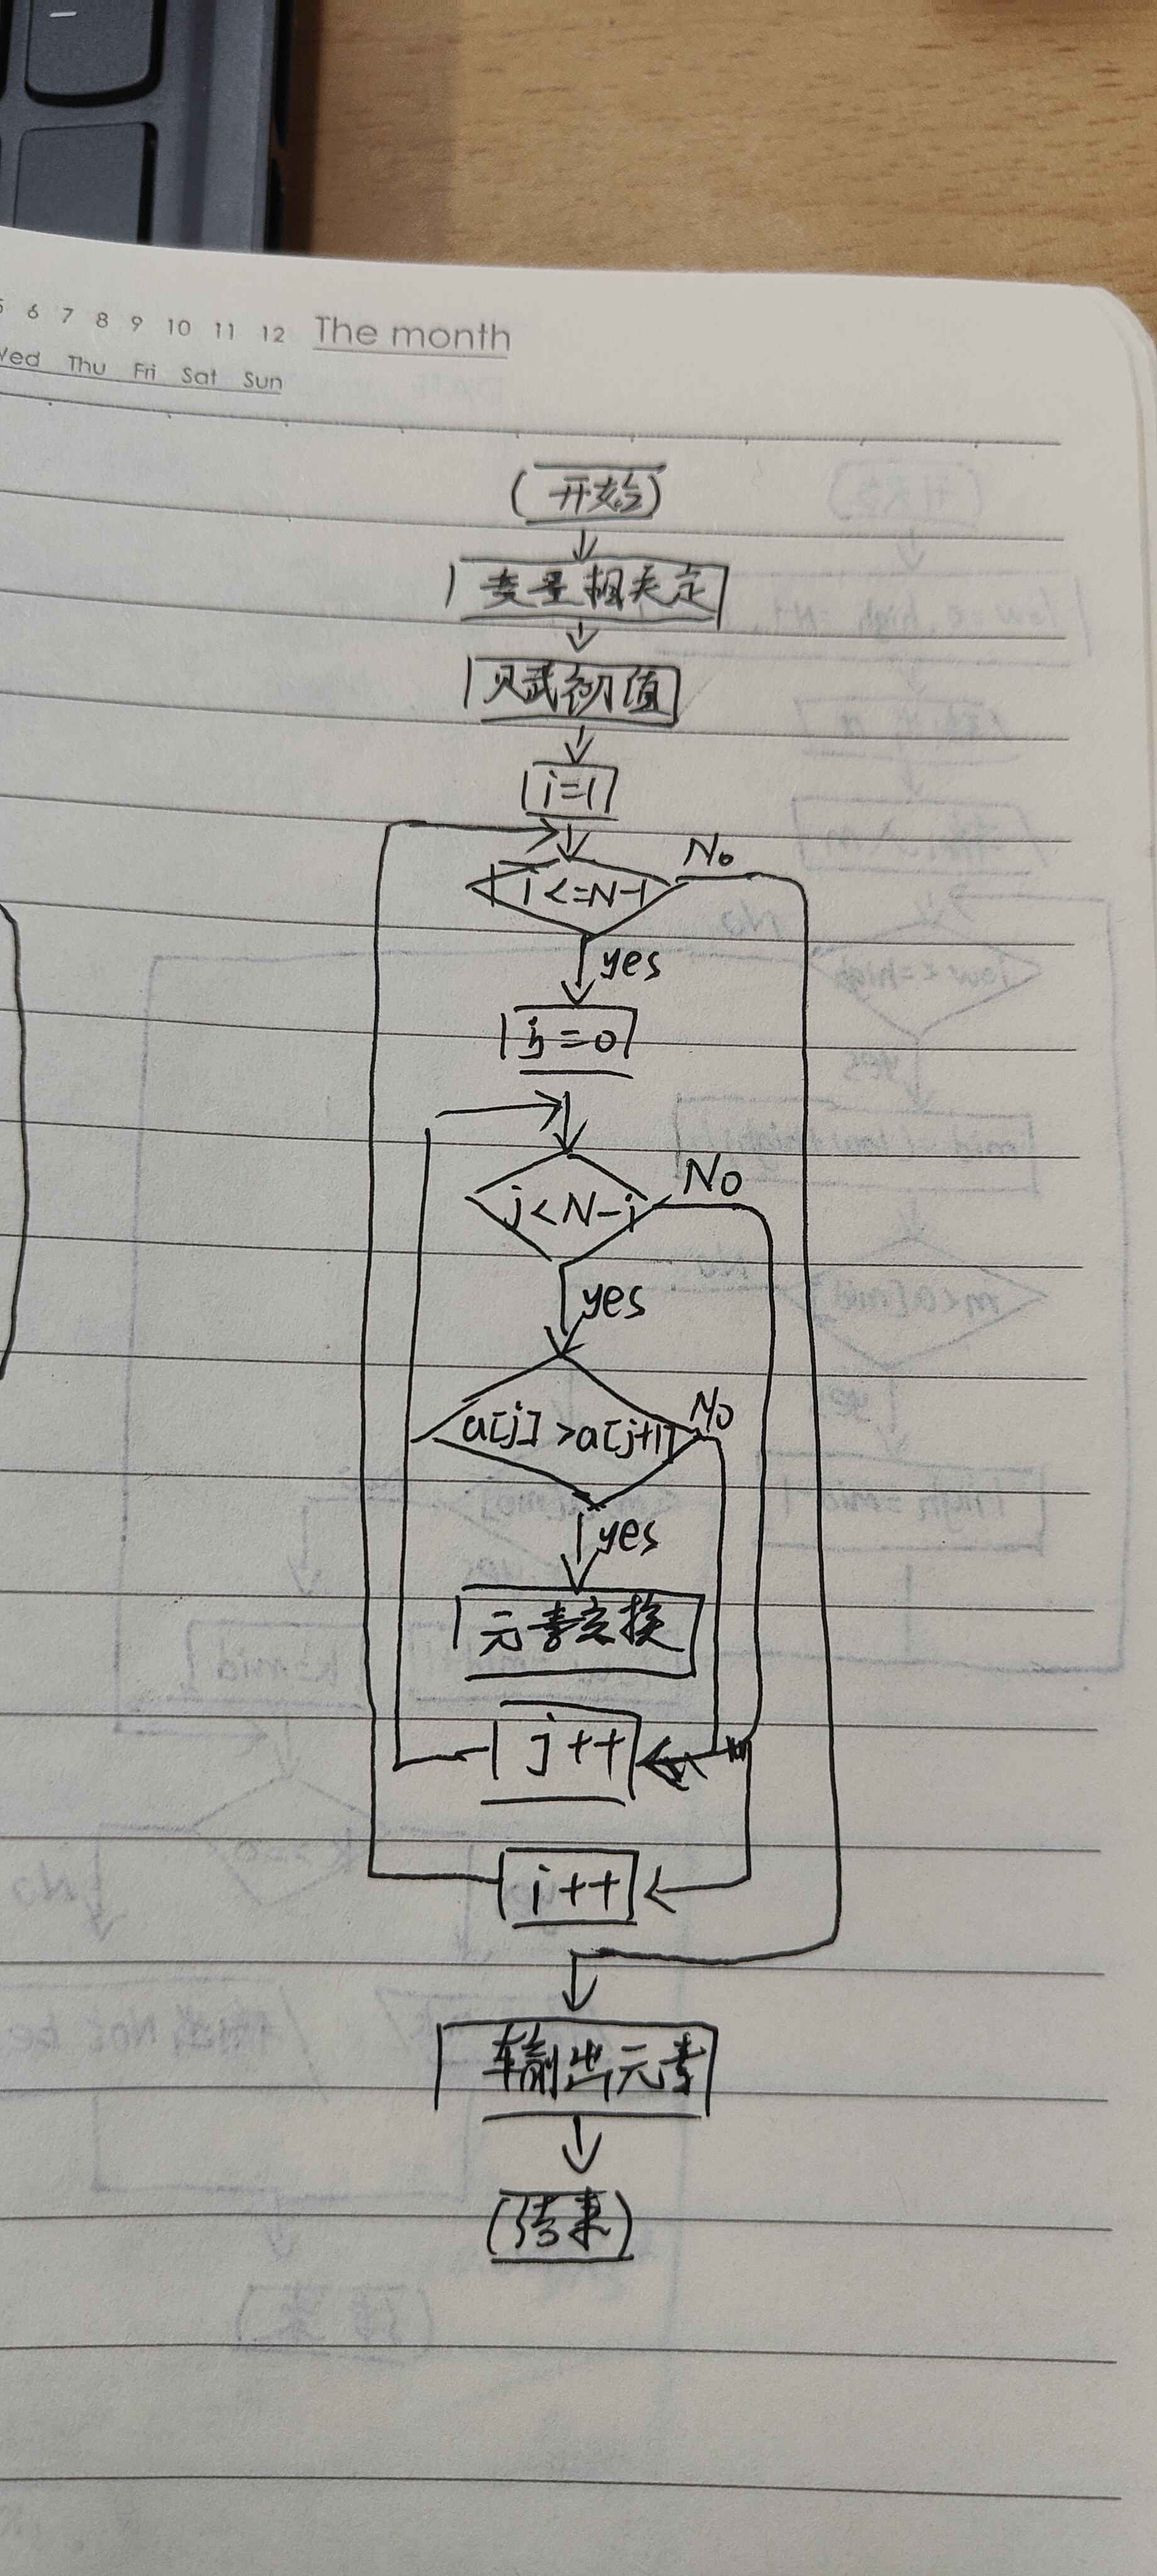 6 7 8 9 10 11 12 The month
Wed Thu Fri Sat Sun
开始
变量相关定
赋初值
i=1
i<=N-1
No
yes
j=0
j<N-i
No
yes
a[j]>a[j+1]
No
yes
元素交换
j++
i++
输出元素
结束